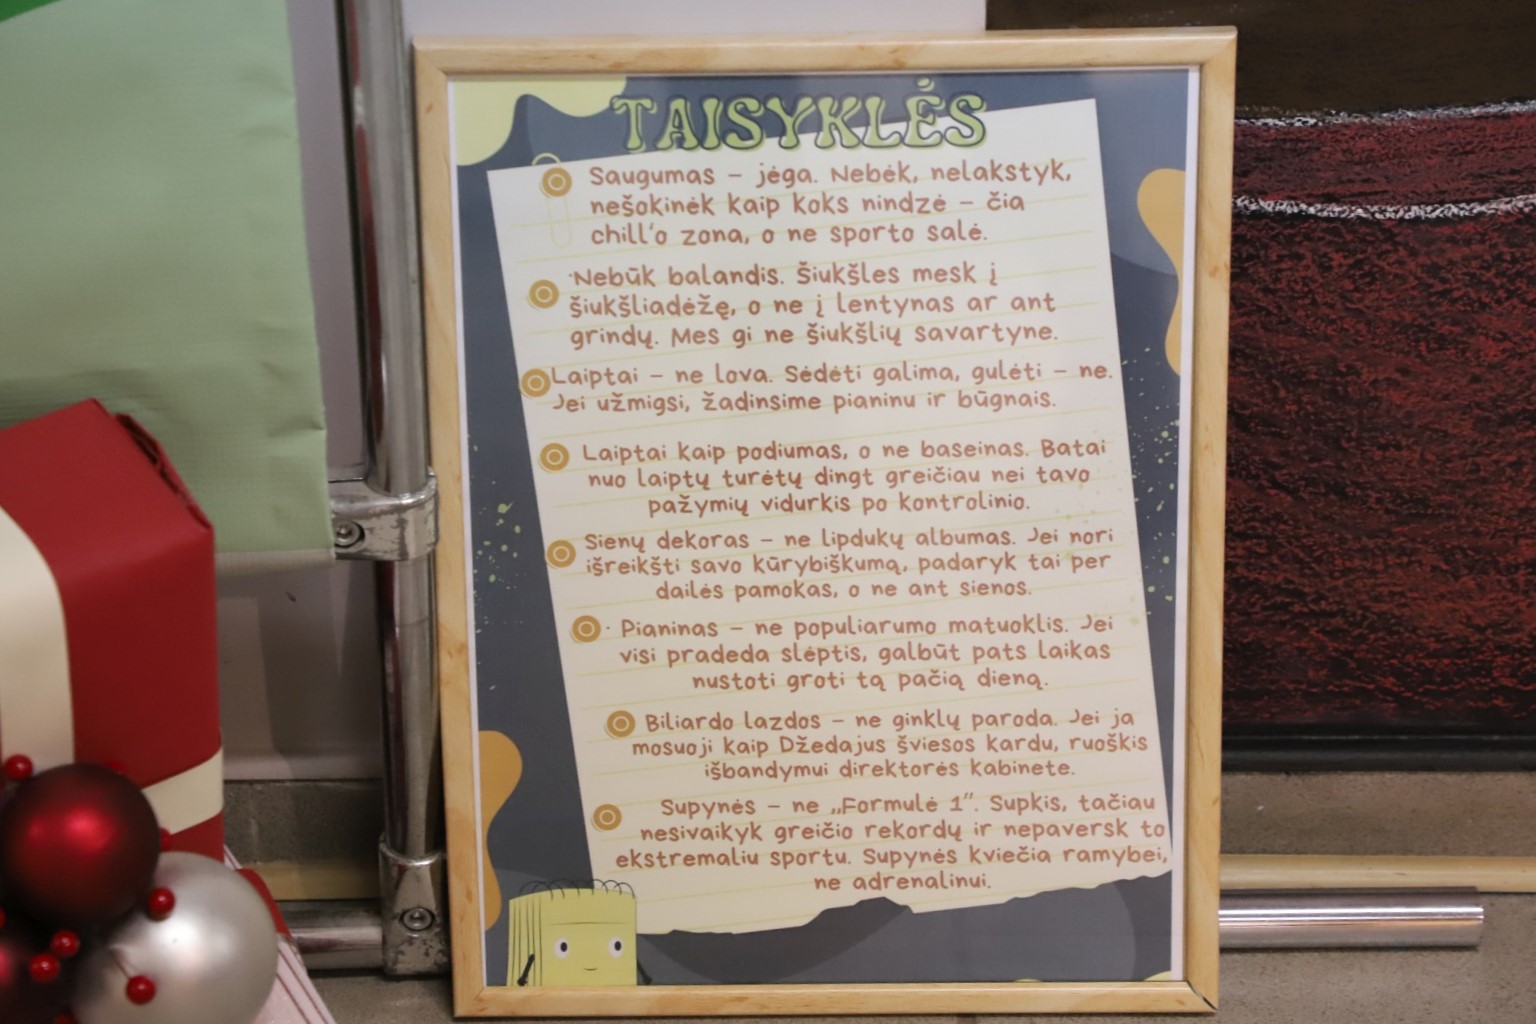 TAISYKLĖS
Saugumas – jėga. Nebėk, nelakstyk,
nešokinėk kaip koks nindzė – čia
chill'o zona, o ne sporto salė.
Nebūk balandis. Šiukšles mesk į
šiukšliadėžę, o ne į lentynas ar ant
grindų. Mes gi ne šiukšlių savartyne.
Laiptai – ne lova. Sėdėti galima, gulėti – ne.
Jei užmigsi, žadinsime pianinu ir būgnais.
Laiptai kaip podiumas, o ne baseinas. Batai
nuo laiptų turėtų dingt greičiau nei tavo
pažymių vidurkis po kontrolinio.
Sienų dekoras – ne lipdukų albumas. Jei nori
išreikšti savo kūrybiškumą, padaryk tai per
dailės pamokas, o ne ant sienos.
· Pianinas – ne populiarumo matuoklis. Jei
visi pradeda slėptis, galbūt pats laikas
nustoti groti tą pačią dieną.
Biliardo lazdos – ne ginklų paroda. Jei ja
mosuoji kaip Džedajus šviesos kardu, ruoškis
išbandymui direktorės kabinete.
Supynės – ne „Formulė 1". Supkis, tačiau
nesivaikyk greičio rekordų ir nepaversk to
ekstremaliu sportu. Supynės kviečia ramybei,
ne adrenalinui.